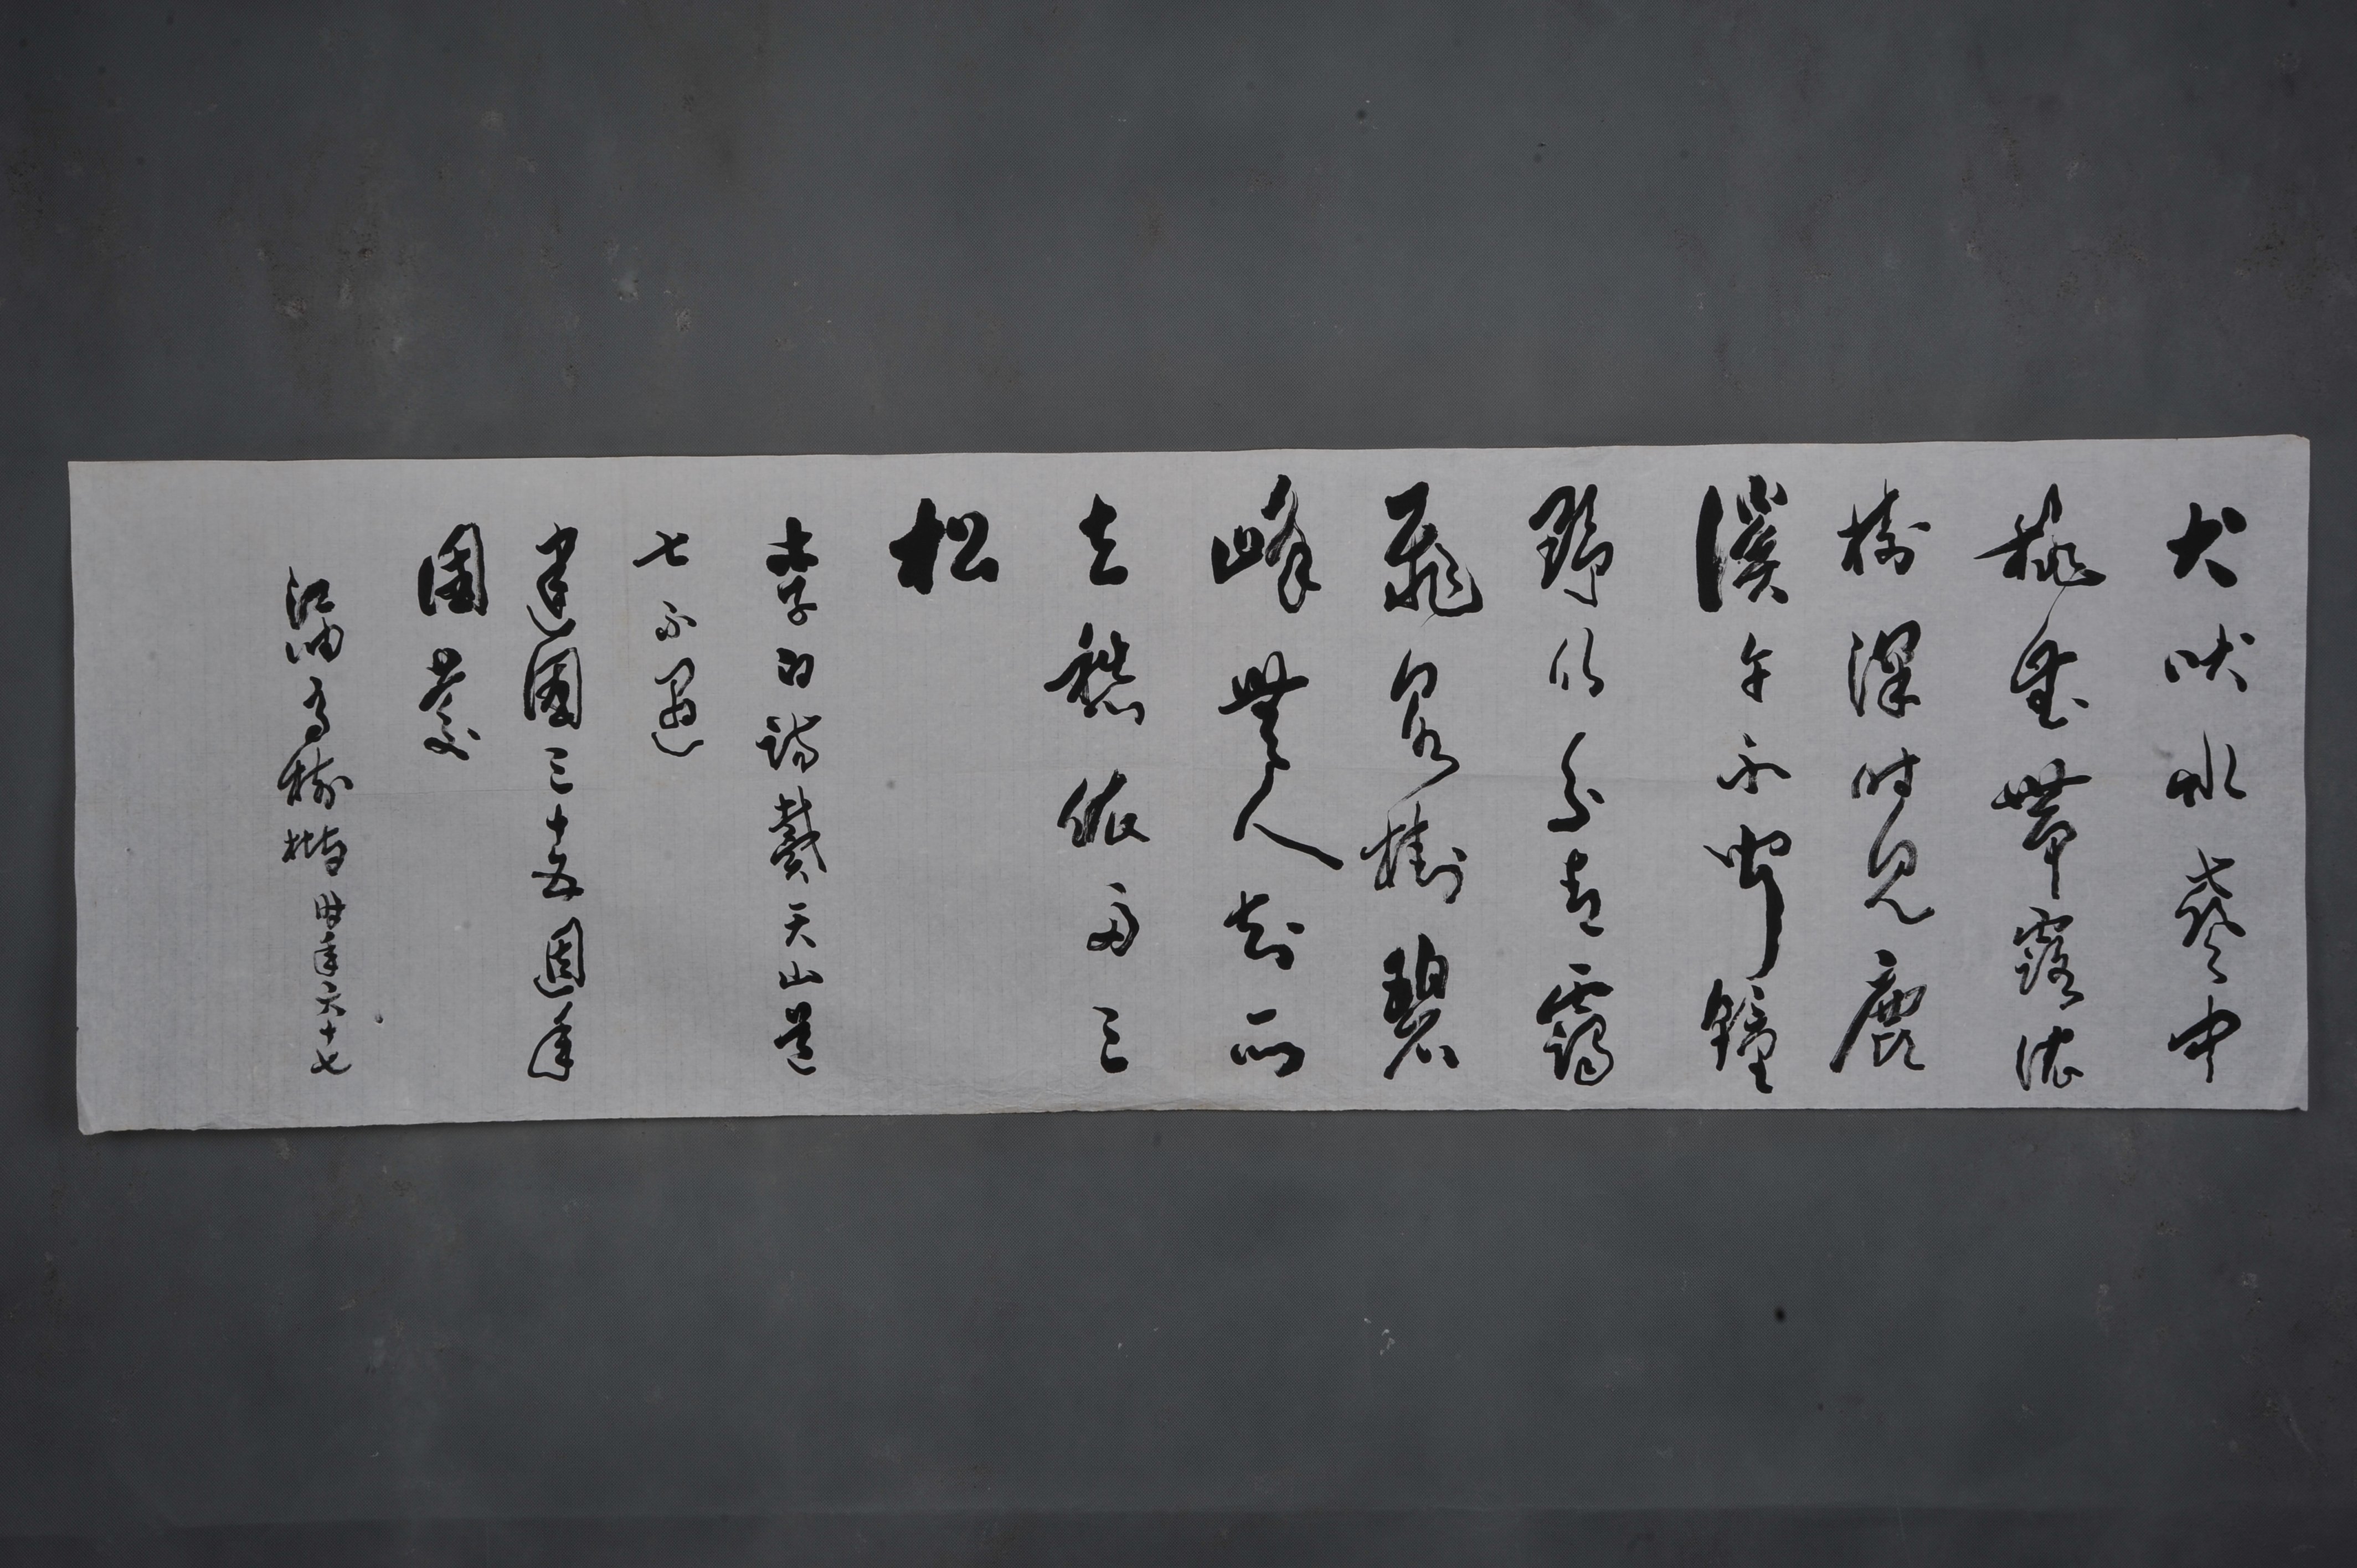 犬吠水聲中
桃華帶露濃
樹深時見鹿
溪午不聞鐘
野竹分青靄
飛泉掛碧
峰無人知所
去愁倚兩三
松
李白訪戴天山道
士不遇
建國三十五週年
國慶
江油 樹楷時年六十七